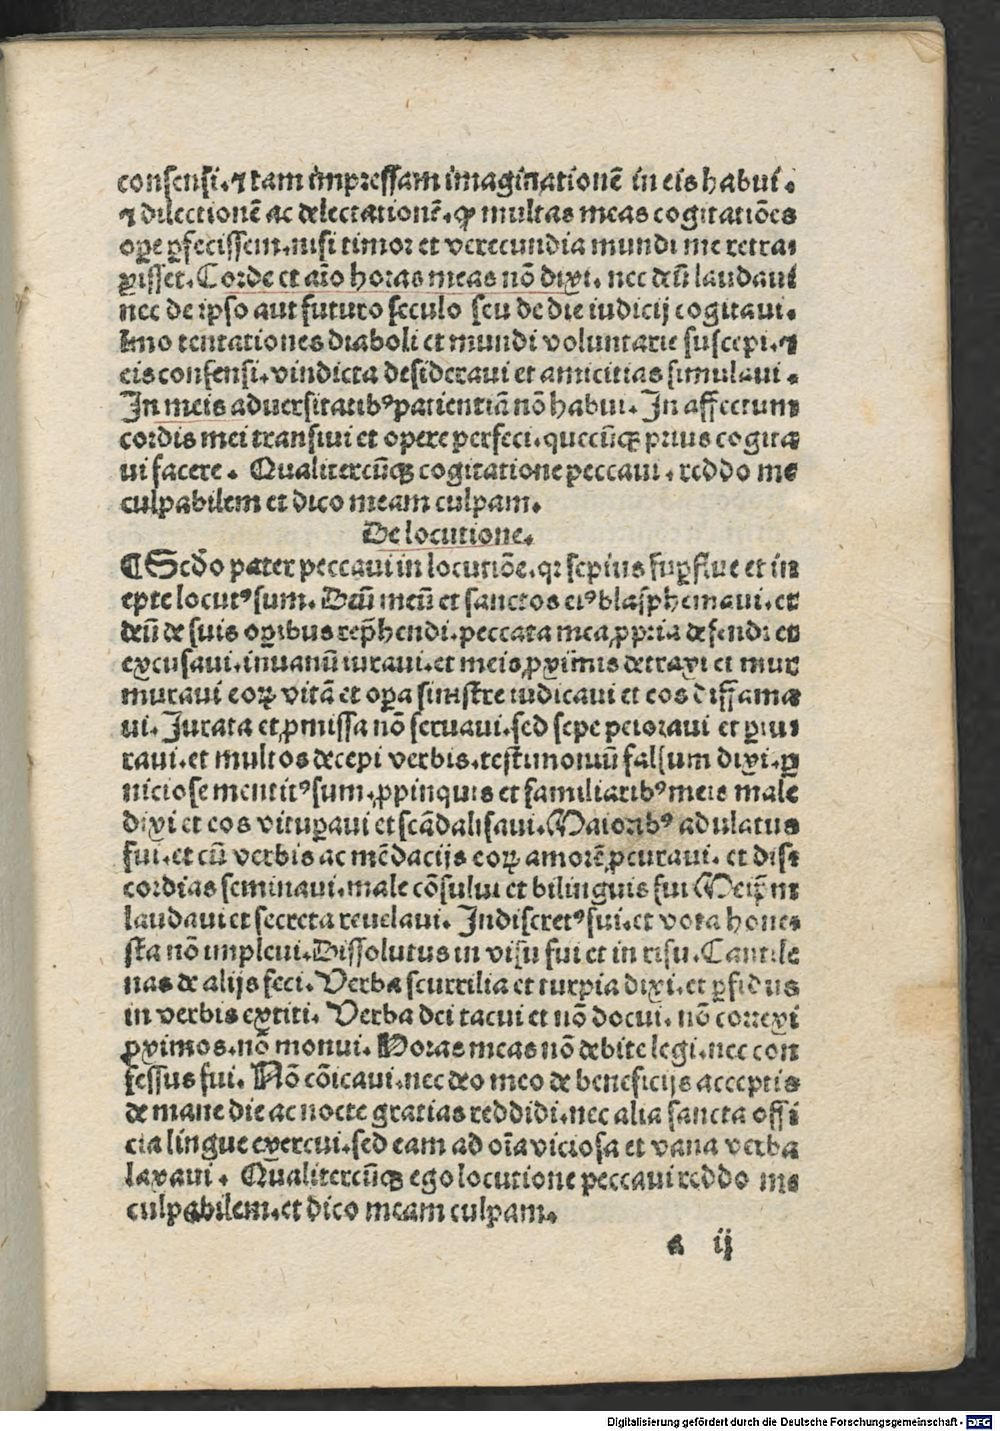 consensi.⁊ tam impressam imaginationē in eis habui.
⁊ dilectionē ac delectationē.ꝙ multas meas cogitatiōes
oꝑe ꝑfecissem.nisi timor et verecundia mundi me retra⸗
xisset. Corde et aīo horas meas nō dixi. nec deū laudaui
nec de ipso aut futuro seculo seu de die iudicij cogitaui.
Imo tentationes diaboli et mundi voluntarie suscepi.⁊
eis consensi.vindicta desideraui et amicitias simulaui.
In meis aduersitatibꝰ patientiā nō habui. In affectum
cordis mei transiui et opere perfeci.quecūqꝫ prius cogita
ui facere. Qualitercūqꝫ cogitatione peccaui. reddo me
culpabilem et dico meam culpam.
De locutione.
¶ Scd̄o pater peccaui in locutiōe.qꝛ sepius suꝑflue et in
epte locutꝰ sum. Deū meū et sanctos eiꝰ blasphemaui.et
deū de suis oꝑibus rep̄hendi.peccata mea ꝓpria defendi et
excusaui.inuanū iuraui.et meis ꝓximis detraxi et mur
muraui eoꝝ vitā et oꝑa sinistre iudicaui et eos diffama
ui. Iurata et ꝓmissa nō seruaui.sed sepe peioraui et ꝑiu⸗
raui.et multos decepi verbis.testimoniū falsum dixi.ꝑ
niciose mentitꝰ sum.ꝓpinquis et familiaribꝰ meis male
dixi et eos vituꝑaui et scādalisaui. Maioribꝰ adulatus
fui.et cū verbis ac mēdacijs eoꝝ amorē ꝓcuraui. et dis⸗
cordias seminaui.male cōsului et bilinguis fui Meip̄m
laudaui et secreta reuelaui. Indiscretꝰ fui.et vota hone⸗
sta nō impleui. Dissolutus in visu fui et in risu. Cantile
nas de alijs feci. Verba scurrilia et turpia dixi.et ꝑfidus
in verbis extiti. Verba dei tacui et nō docui. nō correxi
ꝓximos.nō monui. Horas meas nō debite legi.nec con
fessus fui. Nō cōicaui.nec deo meo de beneficijs acceptis
de mane die ac nocte gratias reddidi.nec alia sancta offi
cia lingue exercui.sed eam ad oīa viciosa et vana verba
laxaui. Qualitercūqꝫ ego locutione peccaui reddo me
culpabilem.et dico meam culpam.
a ij
Digitalisierung gefördert durch die Deutsche Forschungsgemeinschaft - DFG